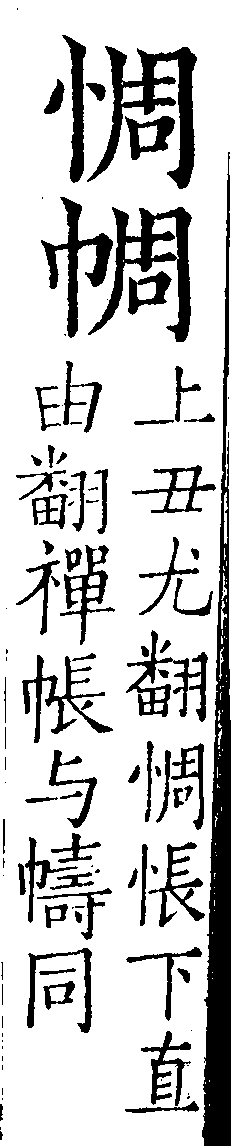 惆幬
上丑尤翻惆悵下直
由翻禪帳与幬同